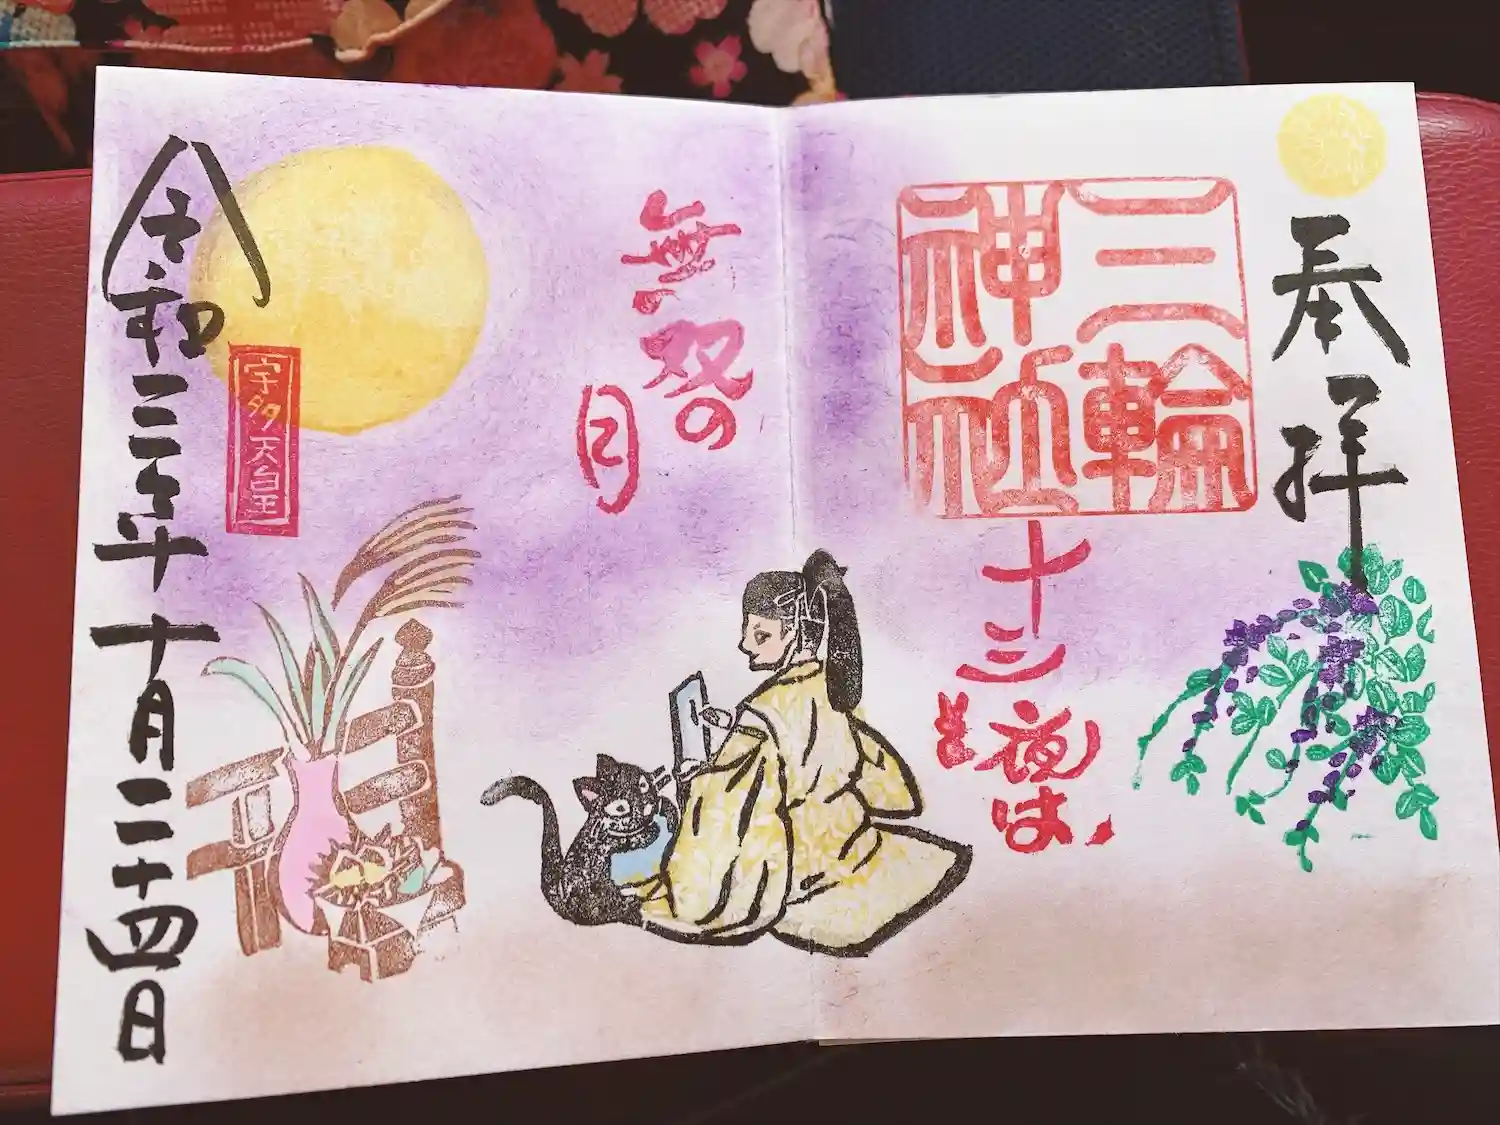 奉拝
三輪
神社
十三夜は
無双の
月
宇多天皇
令和三年十月二十四日